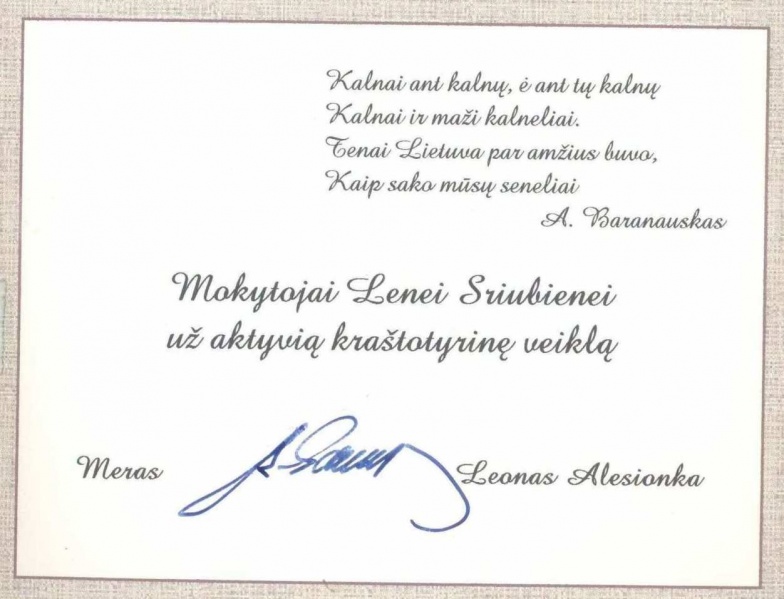 Kalnai ant kalnų, ė ant tų kalnų
Kalnai ir maži kalneliai.
Tenai Lietuva par amžius buvo,
Kaip sako mūsų seneliai
A. Baranauskas
Mokytojai Lenei Sriubienei
už aktyvią kraštotyrinę veiklą
Meras
Leonas Alesionka